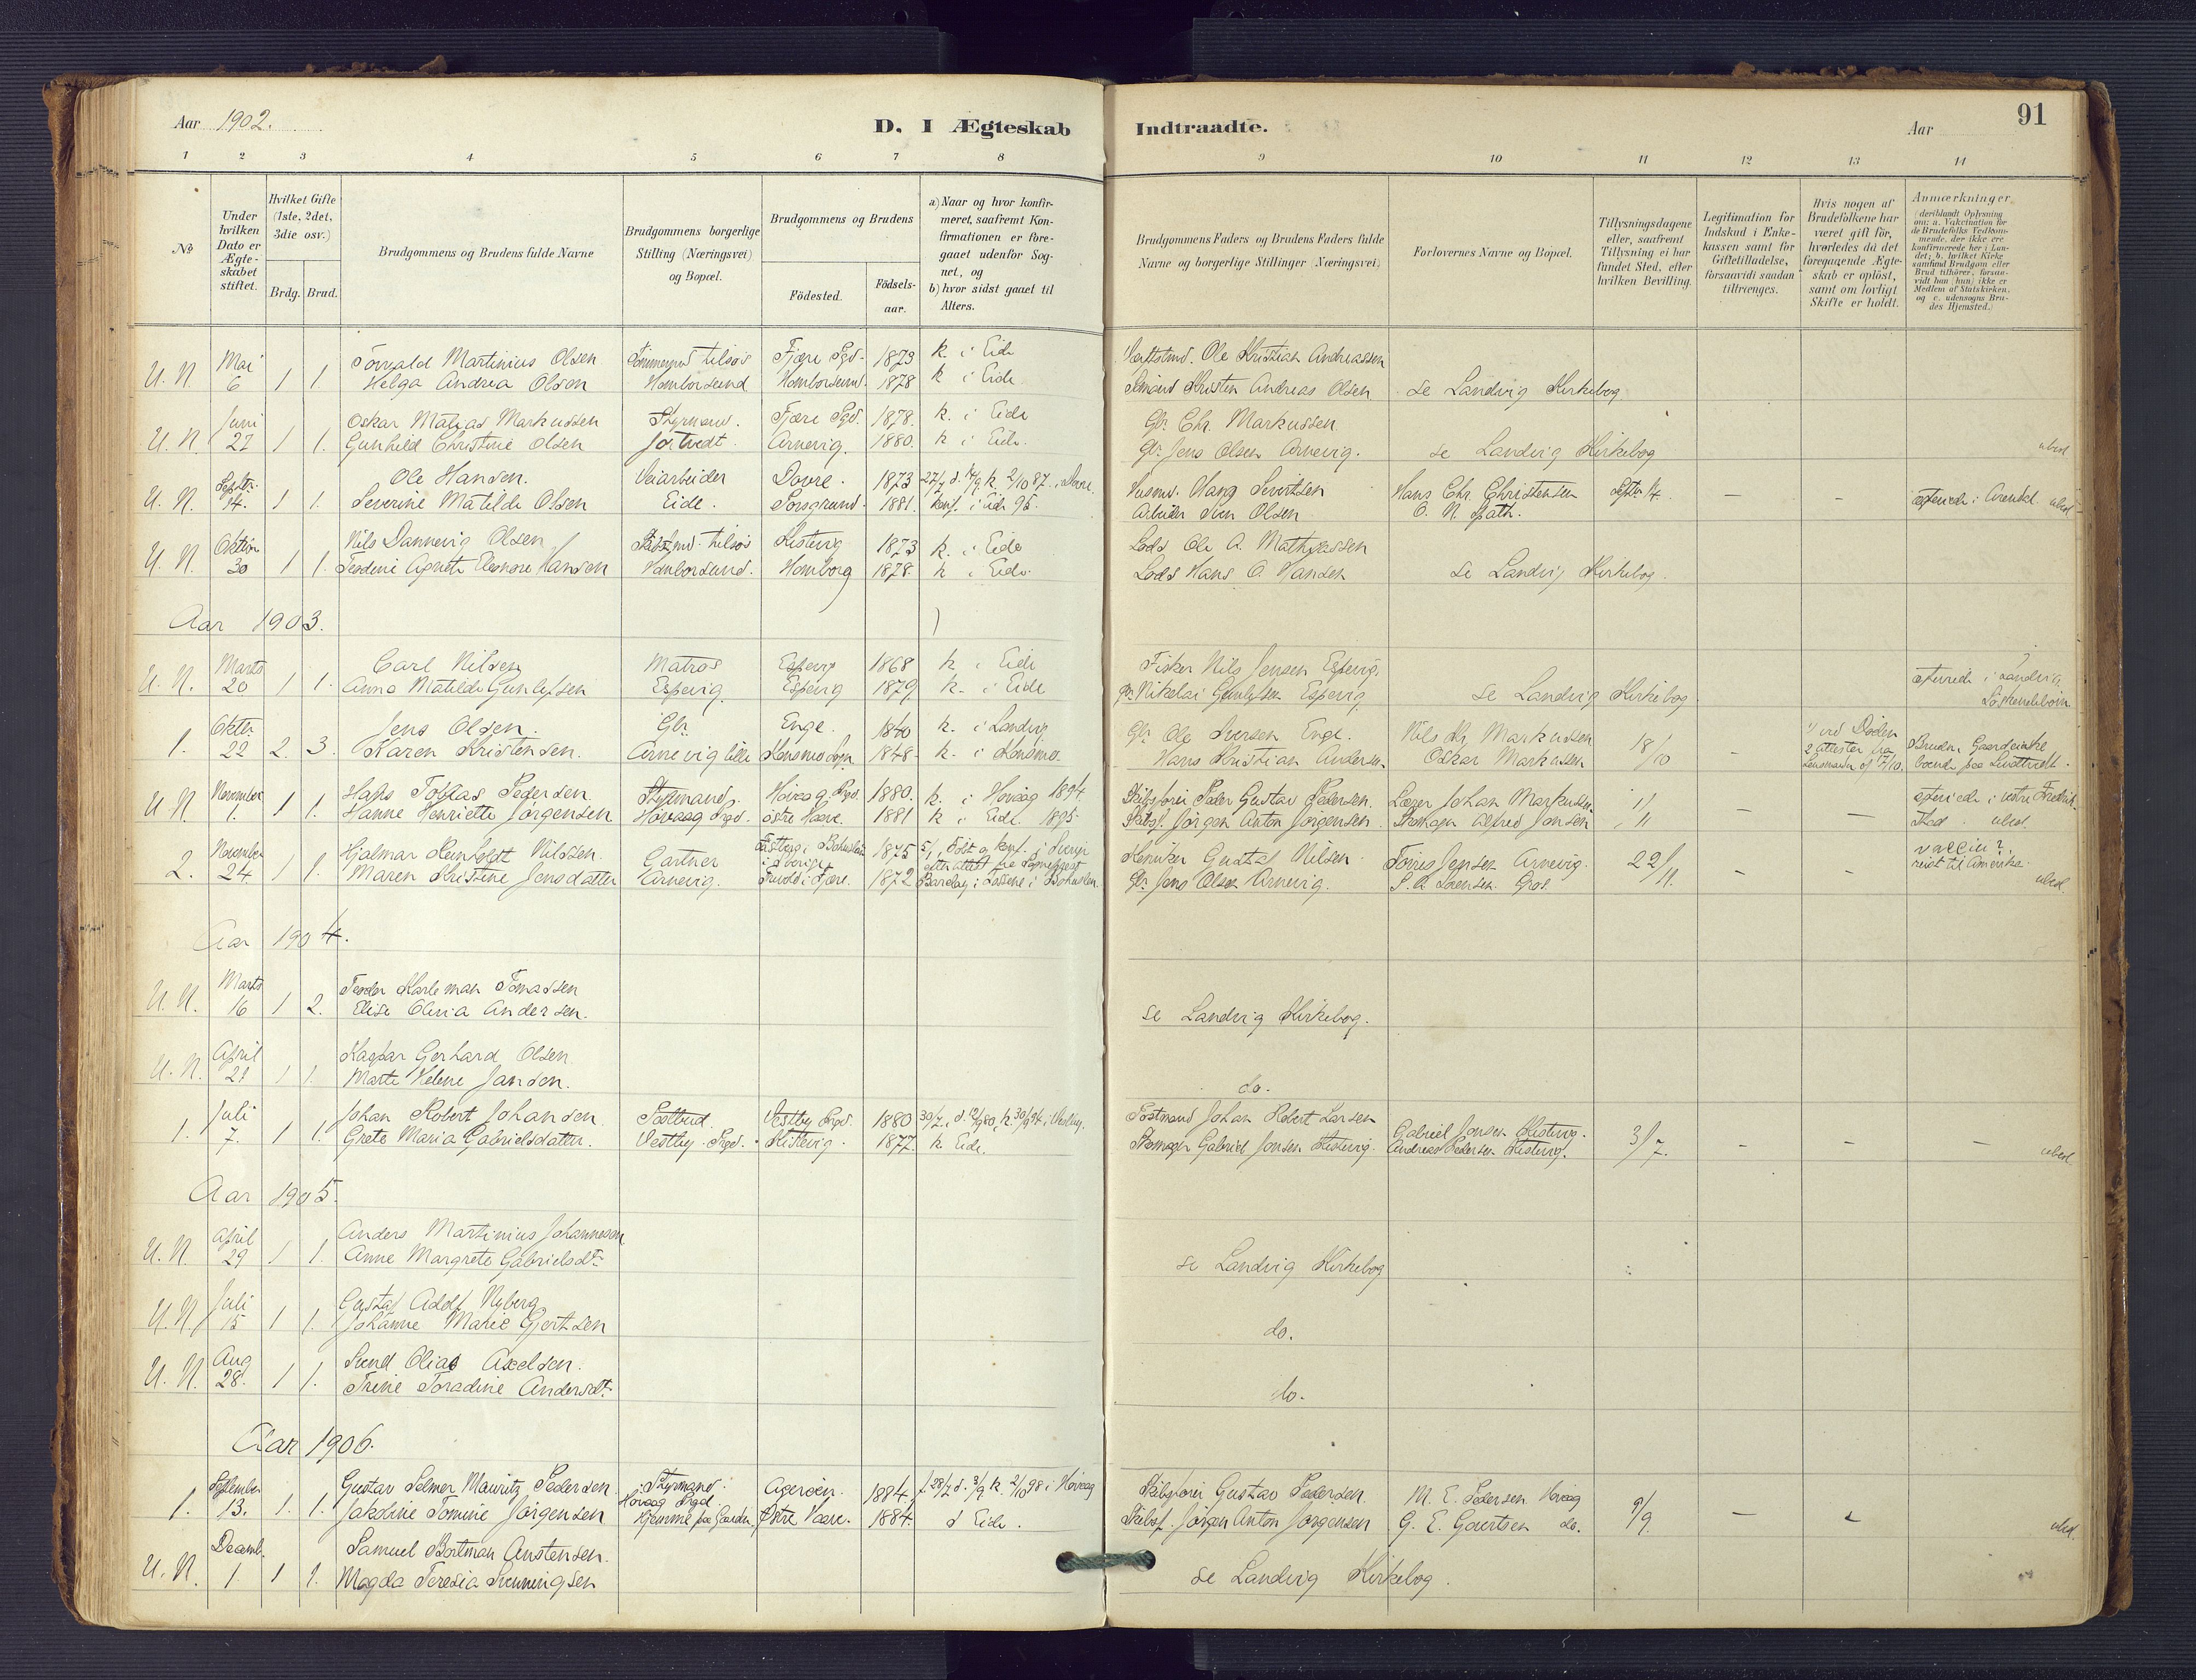 Aar 1902.
D. I Ægteskab Indtraadte.
Aar
91
1 2 3 4 5 6 7 8 9 10 11 12 13 14
No
Under hvilken Dato er Ægteskabet stiftet.
Hvilket Gifte (1ste, 2det, 3die osv.)
Brdg. Brud.
Brudgommens og Brudens fulde Navne
Brudgommens borgerlige Stilling (Næringsvei) og Bopæl.
Brudgommens og Brudens
Födested.
Födsels-aar.
a) Naar og hvor konfirmeret, saafremt Konfirmationen er foregaaet udenfor Sognet, og
b) hvor sidst gaaet til Alters.
Brudgommens Faders og Brudens Faders fulde Navne og borgerlige Stillinger (Næringsvei)
Forlovernes Navne og Bopæl.
Tillysningsdagene eller, saafremt Tillysning ei har fundet Sted, efter hvilken Bevilling.
Legitimation for Indskud i Enkekassen samt for Giftetilladelse, forsaavidt saadan tiltrænges.
Hvis nogen af Brudefolkene har været gift för, hvorledes da det foregaaende Ægteskab er oplöst, samt om lovligt Skifte er holdt.
Anmærkninger
(deriblandt Oplysning om: a. Vakcination for de Brudefolks Vedkommende, der ikke ere konfirmerede her i Landet; b. hvilket Kirkesamfund Brudgom eller Brud tilhörer, forsaavidt han (hun) ikke er Medlem af Statskirken, og c. udensogns Brudes Hjemsted.)
Mai Torvald Martinius Olsen Tømmermd tilsøs Fjære Pgd. 1873 k. i Eide Ole Kristian Andreassen
U. N. 6 1 1 Helga Andrea Olsen Homborsund Homborsund. 1878 k i Eide. Kristen Andreas Olsen se Landvig Kirkebog
Juni Oskar Matias Markussen Styrmand. Fjære Pgd. 1878. k. i Eide Gbr. Chr. Markussen
U. N. 27 1 1. Gunhild Christine Olsen Jortvedt. Arnevig. 1880. k i Eide. Gbr. Jens Olsen Arnevig. se Landvig Kirkebog ubesl
Septbr. Ole Hansen. Veiarbeider Dovre. 1873 27/7 d. 14/9 k. 2/10 87. i Dovre. Husmd. Hans Sivertsen Hans Chr. Christensen Septbr 14.
U. N. 14. 1 1. Severine Matilde Olsen Eide. Porsgrund. 1881. konf. i Eide 95. Arbeider Sven Olsen O. N. Spath. - - i Arendal. ubesl
Oktbr. Nils Dannevig Olsen tilsøs Kistevig 1873 k. i Eide Lods Ole A. Mathiassen
U. N. 30 1 1. Teodine Agnete Eleonore Hansen Homborsund. Homborg 1878. k i Eide. Lods Hans O. Hansen se Landvig Kirkebog.
Aar 1903.
Marts Carl Nilsen Matros Espevig 1868 k i Eide Fisker Nils Jensen Espevig.
U. N. 20 1 1. Anna Matilde Gunlefsen Espevig. Espevig 1879 k. i Eide Gbr. Nikolai Gunlefsen Espevig. se Landvig Kirkebog i Landvig
Oktbr. Jens Olsen. Gbr. Enge. 1840 k. i Landvig Gbr. Ole Iversen Enge. Nils Kr. Markussen 18/10 - 1) ved Døden Bruden Gaardeierske
1. 22 2. 3. Karen Kristensen. Arnevig lille Konsmo sogn 1848. k. i Konsmo. Hans Kristian Andersen Oskar Markussen 2 attester fra Lensmanden af 17/10. boende paa
November Hans Tobias Pedersen. Styrmand. Høvaag Pgd. 1880. k. i Høvaag 1894. Skibsfører Peder Gustav Pedersen. Johan Markussen 1/11
U. N. 1. 1 1. Hanne Henriette Jørgensen Høvaag Pgd. østre Vaare. 1881 k i Eide 1895. Skibsf. Jørgen Anton Jørgensen. Alfred Jansen - - ubesl.
November Hjalmar Reinholdt Nilsen. Gartner i Bohuslen i Sverige 1875 5/1, født og konf. i Sverige Gustaf Nilsen. Jensen Arnevig. 22/11. - - vaccin?.
2. 24 1 1. Maren Kristine Jensdatter Arnevig. i Fjære. 1872 i Bohuslen. Gbr. Jens Olsen Arnevig. reist til Amerika. ubesl
Aar 1904.
Marts Teodor Karleman Tomassen
U. N. 16 1 2. Elise Olivia Andersen. se Landvig Kirkebog.
April Kaspar Gerhard Olsen.
U. N. 21 1 1. Marte Helene Jansen. do.
Juli Johan Robert Johansen 1880 30/7, d. 12/9 80, k. 30/9 94 i Vestby. Postmand Johan Robert Larsen Gabriel Jensen Kistevig. 3/7.
1. 7. 1 1. Grete Maria Gabrielsdatter. Vestby Pgd. Vestby Pgd. Kistevig. 1877. k Eide. Gabriel Jensen Kistevig. Andreas Pedersen Kistevig. - - - ubesl
Aar 1905.
April Anders Martinius Johannesen
U. N. 29 1 1. Anne Margrete Gabrielsdtr. se Landvig Kirkebog
Juli Gustaf Adolf Nyberg
U. N. 15 1 1. Johanne Marie Gjertsen do.
Aug Svend Olias Axelsen.
U. N. 28. 1 1. Trine Toradine Andersdtr. do.
Aar 1906.
September Gustav Selmer Mauritz Pedersen Styrmand. Høvaag Pgd. Agerøen. 1884. f. 28/7 d. 3/9 k. 2/10 98 i Høvaag Skibsfører Gustav Pedersen. M. E. Pedersen Høvaag 9/9.
1. 13. 1. 1. Jakobine Tomine Jørgensen Østre Vaare. 1884. d Eide. Skibsf. Jørgen Anton Jørgensen G. E. Govertsen do. - - ubesl.
Decemb. Samuel Bertman Anstensen.
U. N. 1. 1 1. Magda Teresia Svenningsen se Landvig Kirkebog.